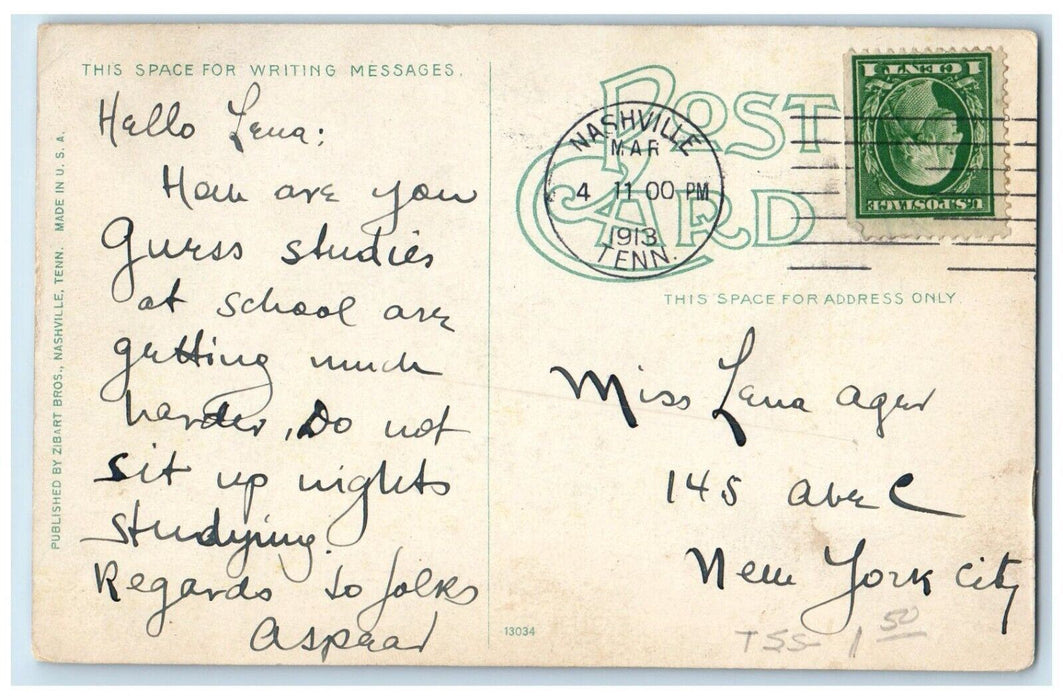 THIS SPACE FOR WRITING MESSAGES.
Hello Lena:
How are you
Guess studies
at school are
getting much
harder, Do not
sit up nights
studying.
Regards to folks
PUBLISHED BY ZIBART BROS., NASHVILLE, TENN. MADE IN U. S. A.
POST
CARD
NASHVILLE
MAR
4 11 00 PM
1913
TENN.
1 CENT 1
U.S. POSTAGE
THIS SPACE FOR ADDRESS ONLY.
Miss Lena Ager
145 Ave C
New York City
13034
TSS 1 50